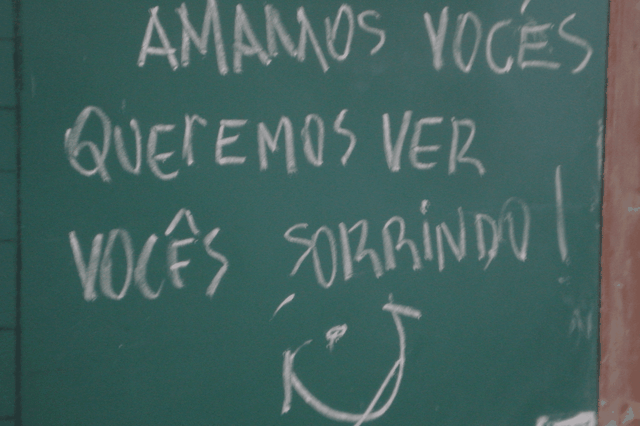 AMAMOS VOCÊS
QUEREMOS VER
VOCÊS SORRINDO!